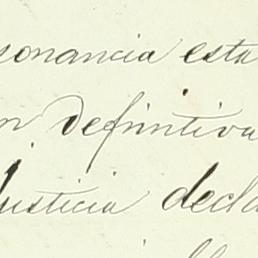 sonancia esta
n definitiva
Justicia decla